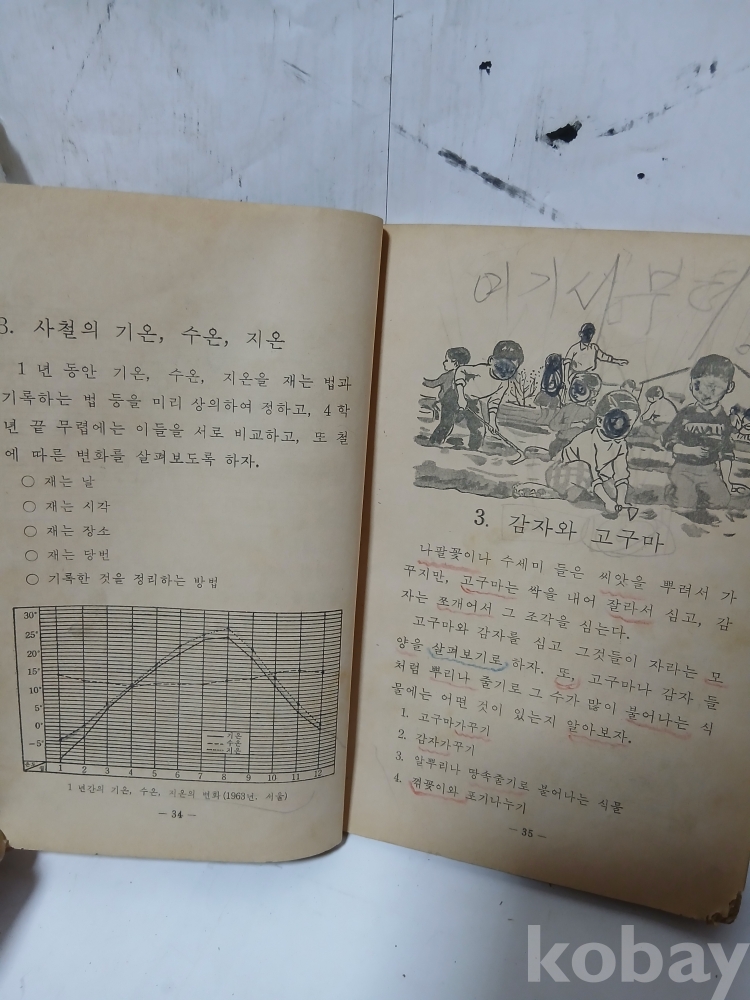 3. 사철의 기온, 수온, 지온
1 년 동안 기온, 수온, 지온을 재는 법과
기록하는 법 등을 미리 상의하여 정하고, 4 학
년 끝 무렵에는 이들을 서로 비교하고, 또 철
에 따른 변화를 살펴보도록 하자.
○ 재는 날
○ 재는 시각
○ 재는 장소
○ 재는 당번
○ 기록한 것을 정리하는 방법
30°
25°
20°
15°
10°
5°
0°
-5°
기온
수온
지온
월
1 2 3 4 5 6 7 8 9 10 11 12
1 년간의 기온, 수온, 지온의 변화(1963년. 서울)
— 34 —
3. 감자와 고구마
나팔꽃이나 수세미 들은 씨앗을 뿌려서 가
꾸지만, 고구마는 싹을 내어 잘라서 심고, 감
자는 쪼개어서 그 조각을 심는다.
고구마와 감자를 심고 그것들이 자라는 모
양을 살펴보기로 하자. 또, 고구마나 감자 들
처럼 뿌리나 줄기로 그 수가 많이 불어나는 식
물에는 어떤 것이 있는지 알아보자.
1. 고구마가꾸기
2. 감자가꾸기
3. 알뿌리나 땅속줄기로 불어나는 식물
4. 꺾꽂이와 포기나누기
— 35 —
kobay